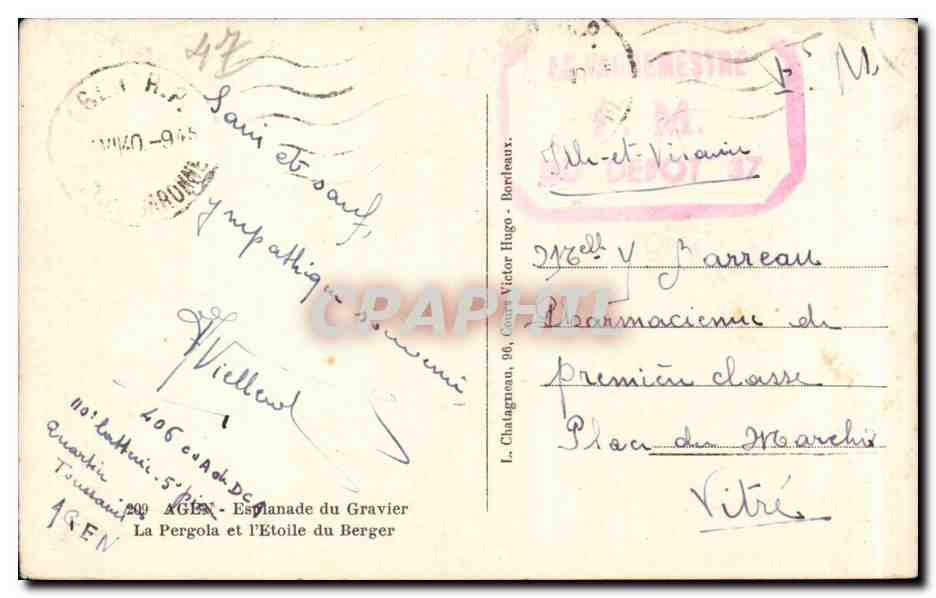 47
Sain et sauf,
sympathique souvenir,
Viellerd
406 cie A de DCA
110e batterie - 5e pièce
Quartier
Toussaint
AGEN
209 AGEN - Esplanade du Gravier
La Pergola et l'Etoile du Berger
L. Chatagneau, 96, Cours Victor Hugo - Bordeaux.
F. M.
F. M.
DU DEPOT 47
Ille-et-Vilaine
Melle Y Barreau
Pharmacienne de
première classe
Place du Marché
Vitré
CPAPHIL